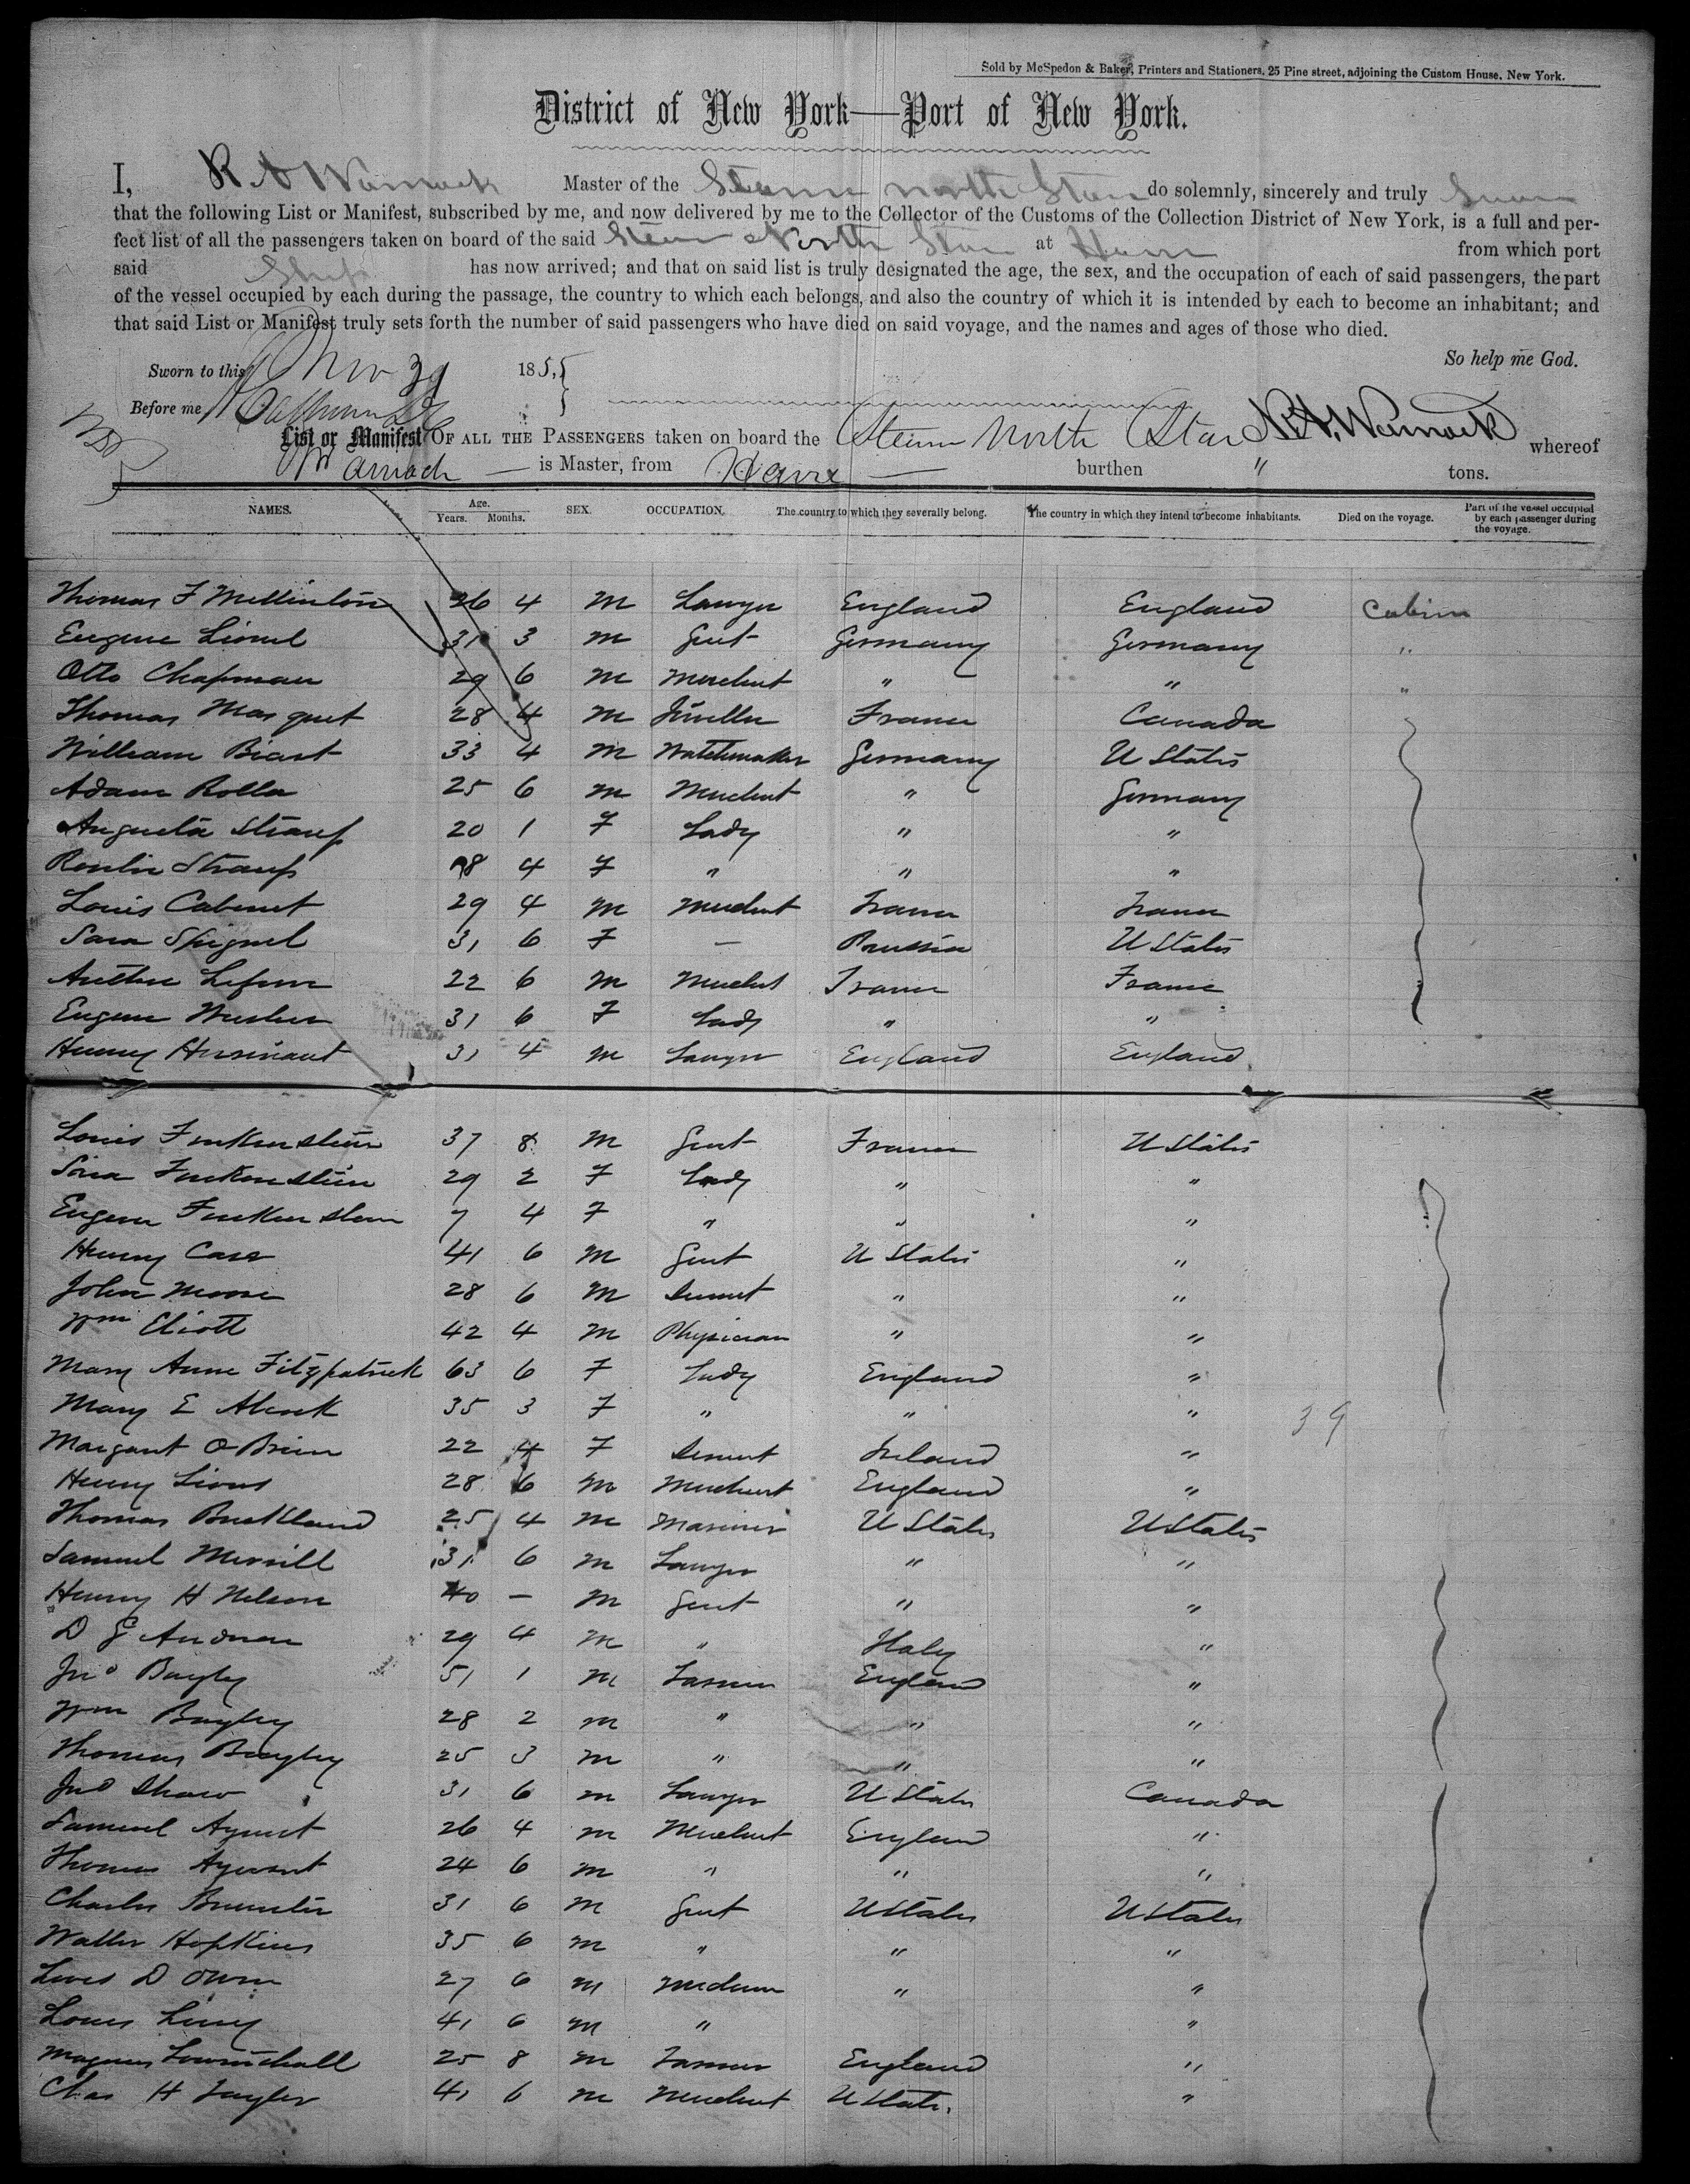 Sold by McSpedon & Baker, Printers and Stationers, 25 Pine street, adjoining the Custom House, New York.
District of New York—Port of New York.
I, R A Warnack Master of the Steamer North Star do solemnly, sincerely and truly Swear
that the following List or Manifest, subscribed by me, and now delivered by me to the Collector of the Customs of the Collection District of New York, is a full and per-
fect list of all the passengers taken on board of the said Steam North Star at Havre from which port
said Ship has now arrived; and that on said list is truly designated the age, the sex, and the occupation of each of said passengers, the part
of the vessel occupied by each during the passage, the country to which each belongs, and also the country of which it is intended by each to become an inhabitant; and
that said List or Manifest truly sets forth the number of said passengers who have died on said voyage, and the names and ages of those who died.
So help me God.
Sworn to this Nov 1855
Before me
List or Manifest OF ALL THE PASSENGERS taken on board the Steam North Star whereof
Warnack is Master, from Havre burthen " tons.
NAMES. Age. Years. Months. SEX. OCCUPATION. The country to which they severally belong. The country in which they intend to become inhabitants. Died on the voyage. Part of the vessel occupied by each passenger during the voyage.
Thomas F 26 4 M Lawyer England England Cabin
Eugene Lionel 31 3 M Gent Germany Germany "
Otto Chapman 29 6 M Merchant " " "
Thomas Marquet 28 4 M Jeweller France Canada
William 33 4 M Watchmaker Germany U States
Adam Rolla 25 6 M Merchant " Germany
Augusta Strauss 20 1 F Lady " "
Strauss 4 F " " "
Louis Cabinet 29 4 M Merchant France France
Sara Spignel 31 6 F — Prussia U States
22 6 M Merchant France France
31 6 F Lady " "
Henry 31 4 M Lawyer England England
Louis 37 8 M Gent France U States
Sara 29 2 F Lady " "
7 4 F " " "
Henry Case 41 6 M Gent U States "
John Moore 28 6 M Servant " "
Wm Eliott 42 4 M Physician " "
Mary Anne Fitzpatrick 63 6 F Lady England "
Mary E Alcock 35 3 F " " " 39
Margaret O Brien 22 4 F Servant Ireland "
Henry Lions 28 6 M Merchant England "
Thomas Buckland 25 4 M Mariner U States U States
Samuel Merrill 31 6 M Lawyer " "
Henry H Nelson 40 — M Gent " "
D G 29 4 M " Italy "
Jno Bayley 51 1 M Farmer England "
Wm Bayley 28 2 M " " "
Thomas Bayley 25 3 M " " "
Jno Shaw 31 6 M Lawyer U States Canada
Samuel 26 4 M Merchant England "
Thomas 24 6 M " " "
Charles 31 6 M Gent U States U States
Walter Hopkins 35 6 M " " "
D Owen 27 6 M " "
Louis 41 6 M " "
25 8 M Farmer England "
Chas H Taylor 41 6 M Merchant U States "